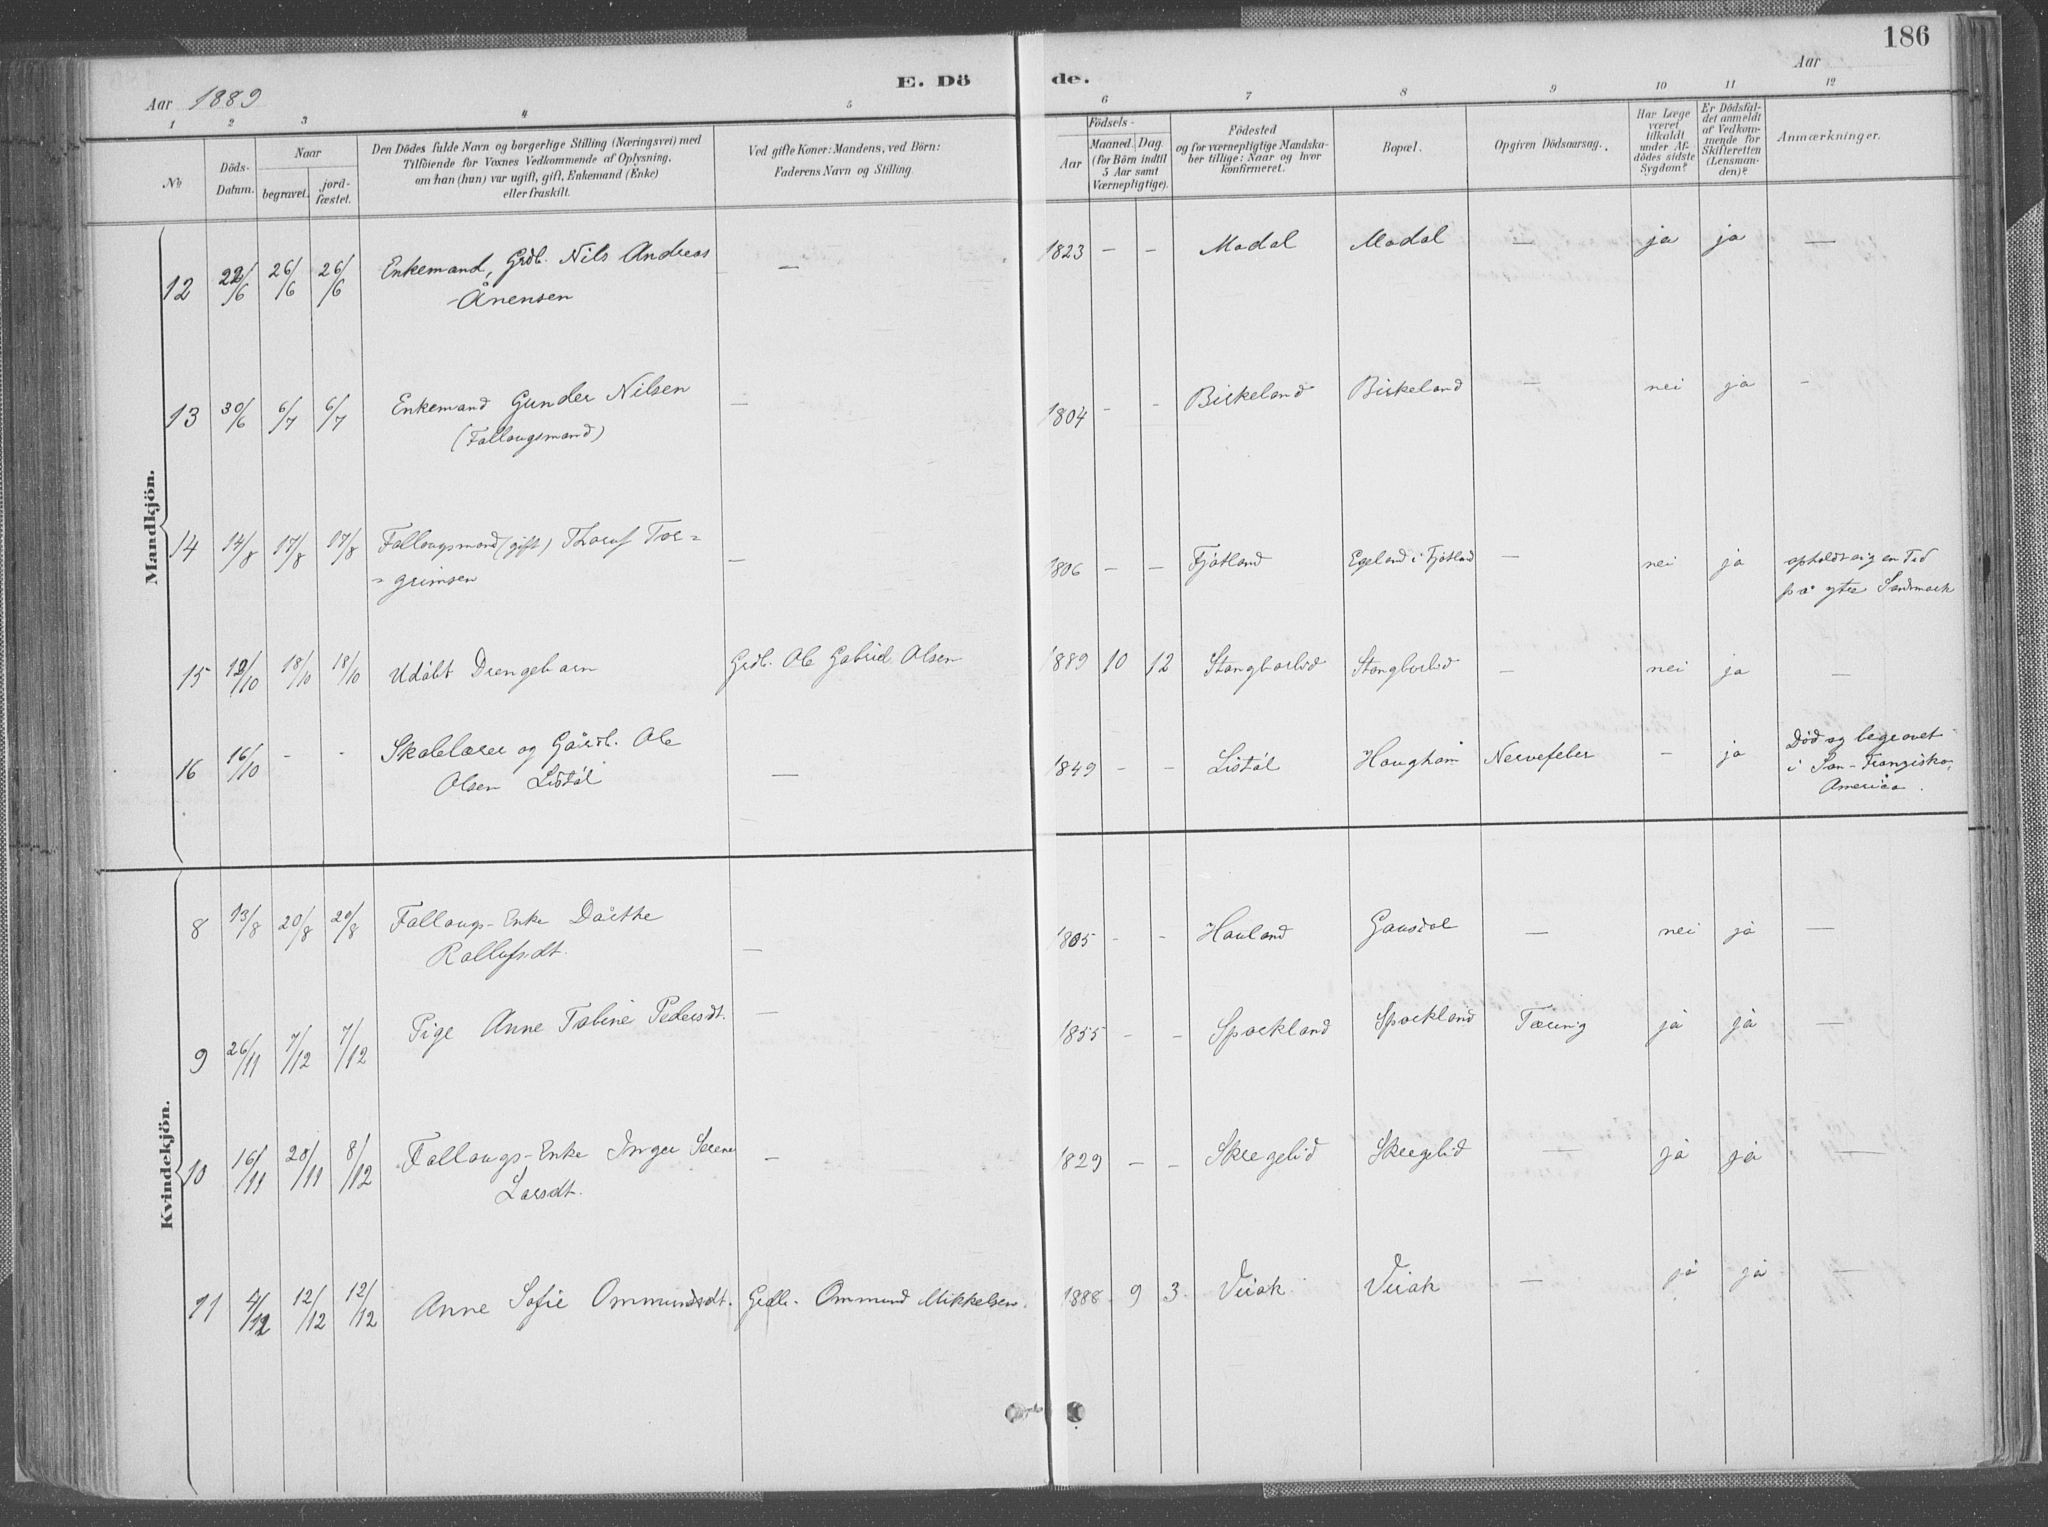 186
Aar 1889
E. Dö
de.
Aar
1 2 3 4 5 6 7 8 9 10 11 12
No
Döds-Datum.
Naar
begravet.
jord-fæstet.
Den Dödes fulde Navn og borgerlige Stilling (Næringsvei) med
Tilföiende for Voxnes Vedkommende af Oplysning,
om han (hun) var ugift, gift, Enkemand (Enke)
eller fraskilt.
Ved gifte Koner: Mandens, ved Börn:
Faderens Navn og Stilling.
Födsels-
Aar
Maaned. Dag.
(for Börn indtil
5 Aar samt
Værnepligtige).
Födested
og for værnepligtige Mandska-
ber tillige: Naar og hvor
konfirmeret.
Bopæl.
Opgiven Dödsaarsag.
Har Læge
været
tilkaldt
under Af-
dödes sidste
Sygdom?
Er Dödsfal-
det anmeldt
af Vedkom-
mende for
Skifteretten
(Lensman-
den)?
Anmærkninger.
Mandkjön.
12 22/6 26/6 26/6 Enkemand, Grdb. Nils Andreas — 1823 — — Modal Modal — ja ja —
Ånensen
13 30/6 6/7 6/7 Enkemand Gunder Nilsen — 1804 - - Birkeland Birkeland — nei ja -
(Fallougsmand)
14 14/8 17/8 17/8 Fallougsmand (gift) Thoruf Tor= — 1806 — — Fjótland Egeland i Fjótland — nei ja opholdt sig en Tid
=grimsen på ytre Sandmark
15 12/10 18/10 18/10 Udøbt Drengebarn Grdb. Ole Gabriel Olsen 1889 10 12 Stangborlid Stangborlid — nei ja —
16 16/10 - - Skolelærer og Gårdb. Ole — 1849 — — Listól Haughom Nervefeber — ja Död og begravet
Olsen Listól i San-Frangisko,
America.
Kvindekjön.
8 13/8 20/8 20/8 Fallougs-Enke Dårthe — 1805 - - Hauland Gausdal — nei já —
Rollufsdt.
9 26/11 7/12 7/12 Pige Anne Tobine Pedersdt. — 1855 — — Sporkland Sporkland Tæring já já —
10 16/11 20/11 8/12 Fallougs-Enke Inger Serene — 1829 — — Skregelid Skregelid — já já —
Larsdt.
11 4/12 12/12 12/12 Anne Sofie Ommundsdt. Grdb. Ommund Mikkelsen. 1888 9 3 Virak Virak — já já —